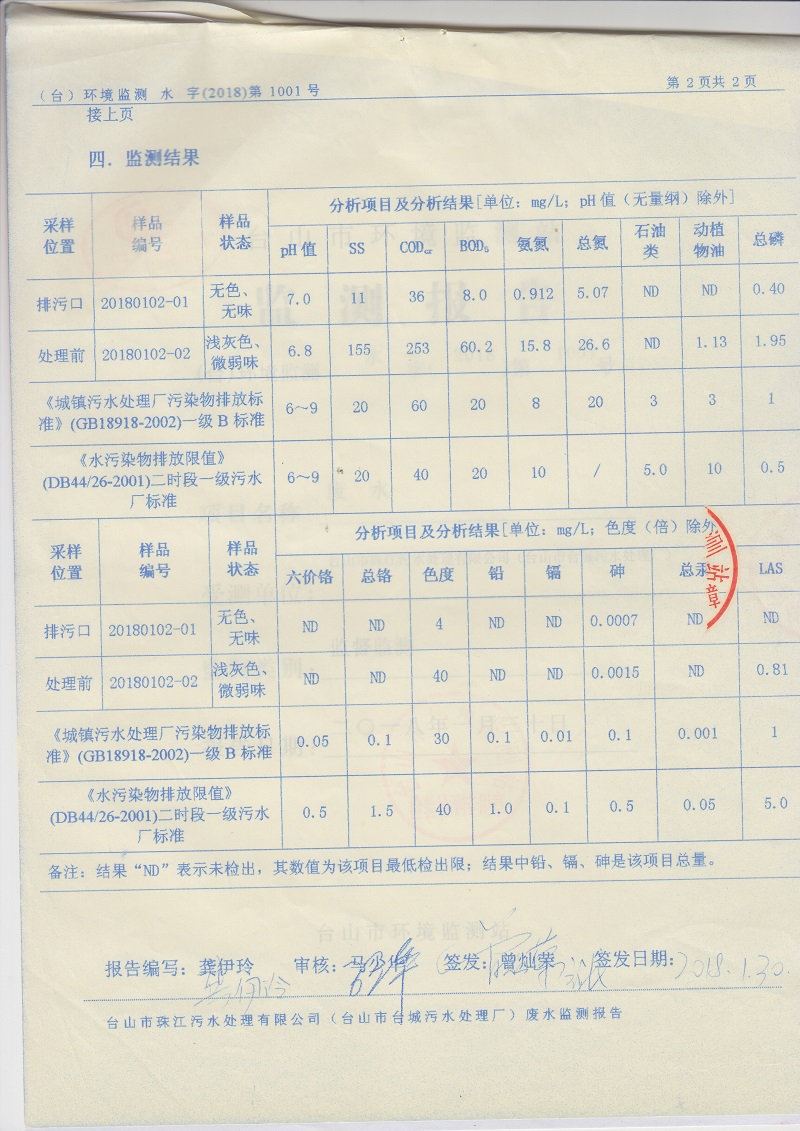 (台)环境监测 水 字(2018)第 1001 号
第 2 页共 2 页
接上页
四. 监测结果
采样位置 样品编号 样品状态 分析项目及分析结果[单位: mg/L; pH 值(无量纲)除外]
pH 值 SS CODcr BOD5 氨氮 总氮 石油类 动植物油 总磷
排污口 20180102-01 无色、无味 7.0 11 36 8.0 0.912 5.07 ND ND 0.40
处理前 20180102-02 浅灰色、微弱味 6.8 155 253 60.2 15.8 26.6 ND 1.13 1.95
《城镇污水处理厂污染物排放标
准》(GB18918-2002)一级 B 标准 6~9 20 60 20 8 20 3 3 1
《水污染物排放限值》
(DB44/26-2001)二时段一级污水
厂标准 6~9 20 40 20 10 / 5.0 10 0.5
采样位置 样品编号 样品状态 分析项目及分析结果[单位: mg/L; 色度(倍)除外
六价铬 总铬 色度 铅 镉 砷 总汞 LAS
排污口 20180102-01 无色、无味 ND ND 4 ND ND 0.0007 ND ND
处理前 20180102-02 浅灰色、微弱味 ND ND 40 ND ND 0.0015 ND 0.81
《城镇污水处理厂污染物排放标
准》(GB18918-2002)一级 B 标准 0.05 0.1 30 0.1 0.01 0.1 0.001 1
《水污染物排放限值》
(DB44/26-2001)二时段一级污水
厂标准 0.5 1.5 40 1.0 0.1 0.5 0.05 5.0
站章
备注: 结果“ND”表示未检出, 其数值为该项目最低检出限; 结果中铅、镉、砷是该项目总量。
报告编写: 龚伊玲 审核: 马少 签发: 曾灿荣 签发日期: 2018.1.30.
台山市珠江污水处理有限公司(台山市台城污水处理厂)废水监测报告